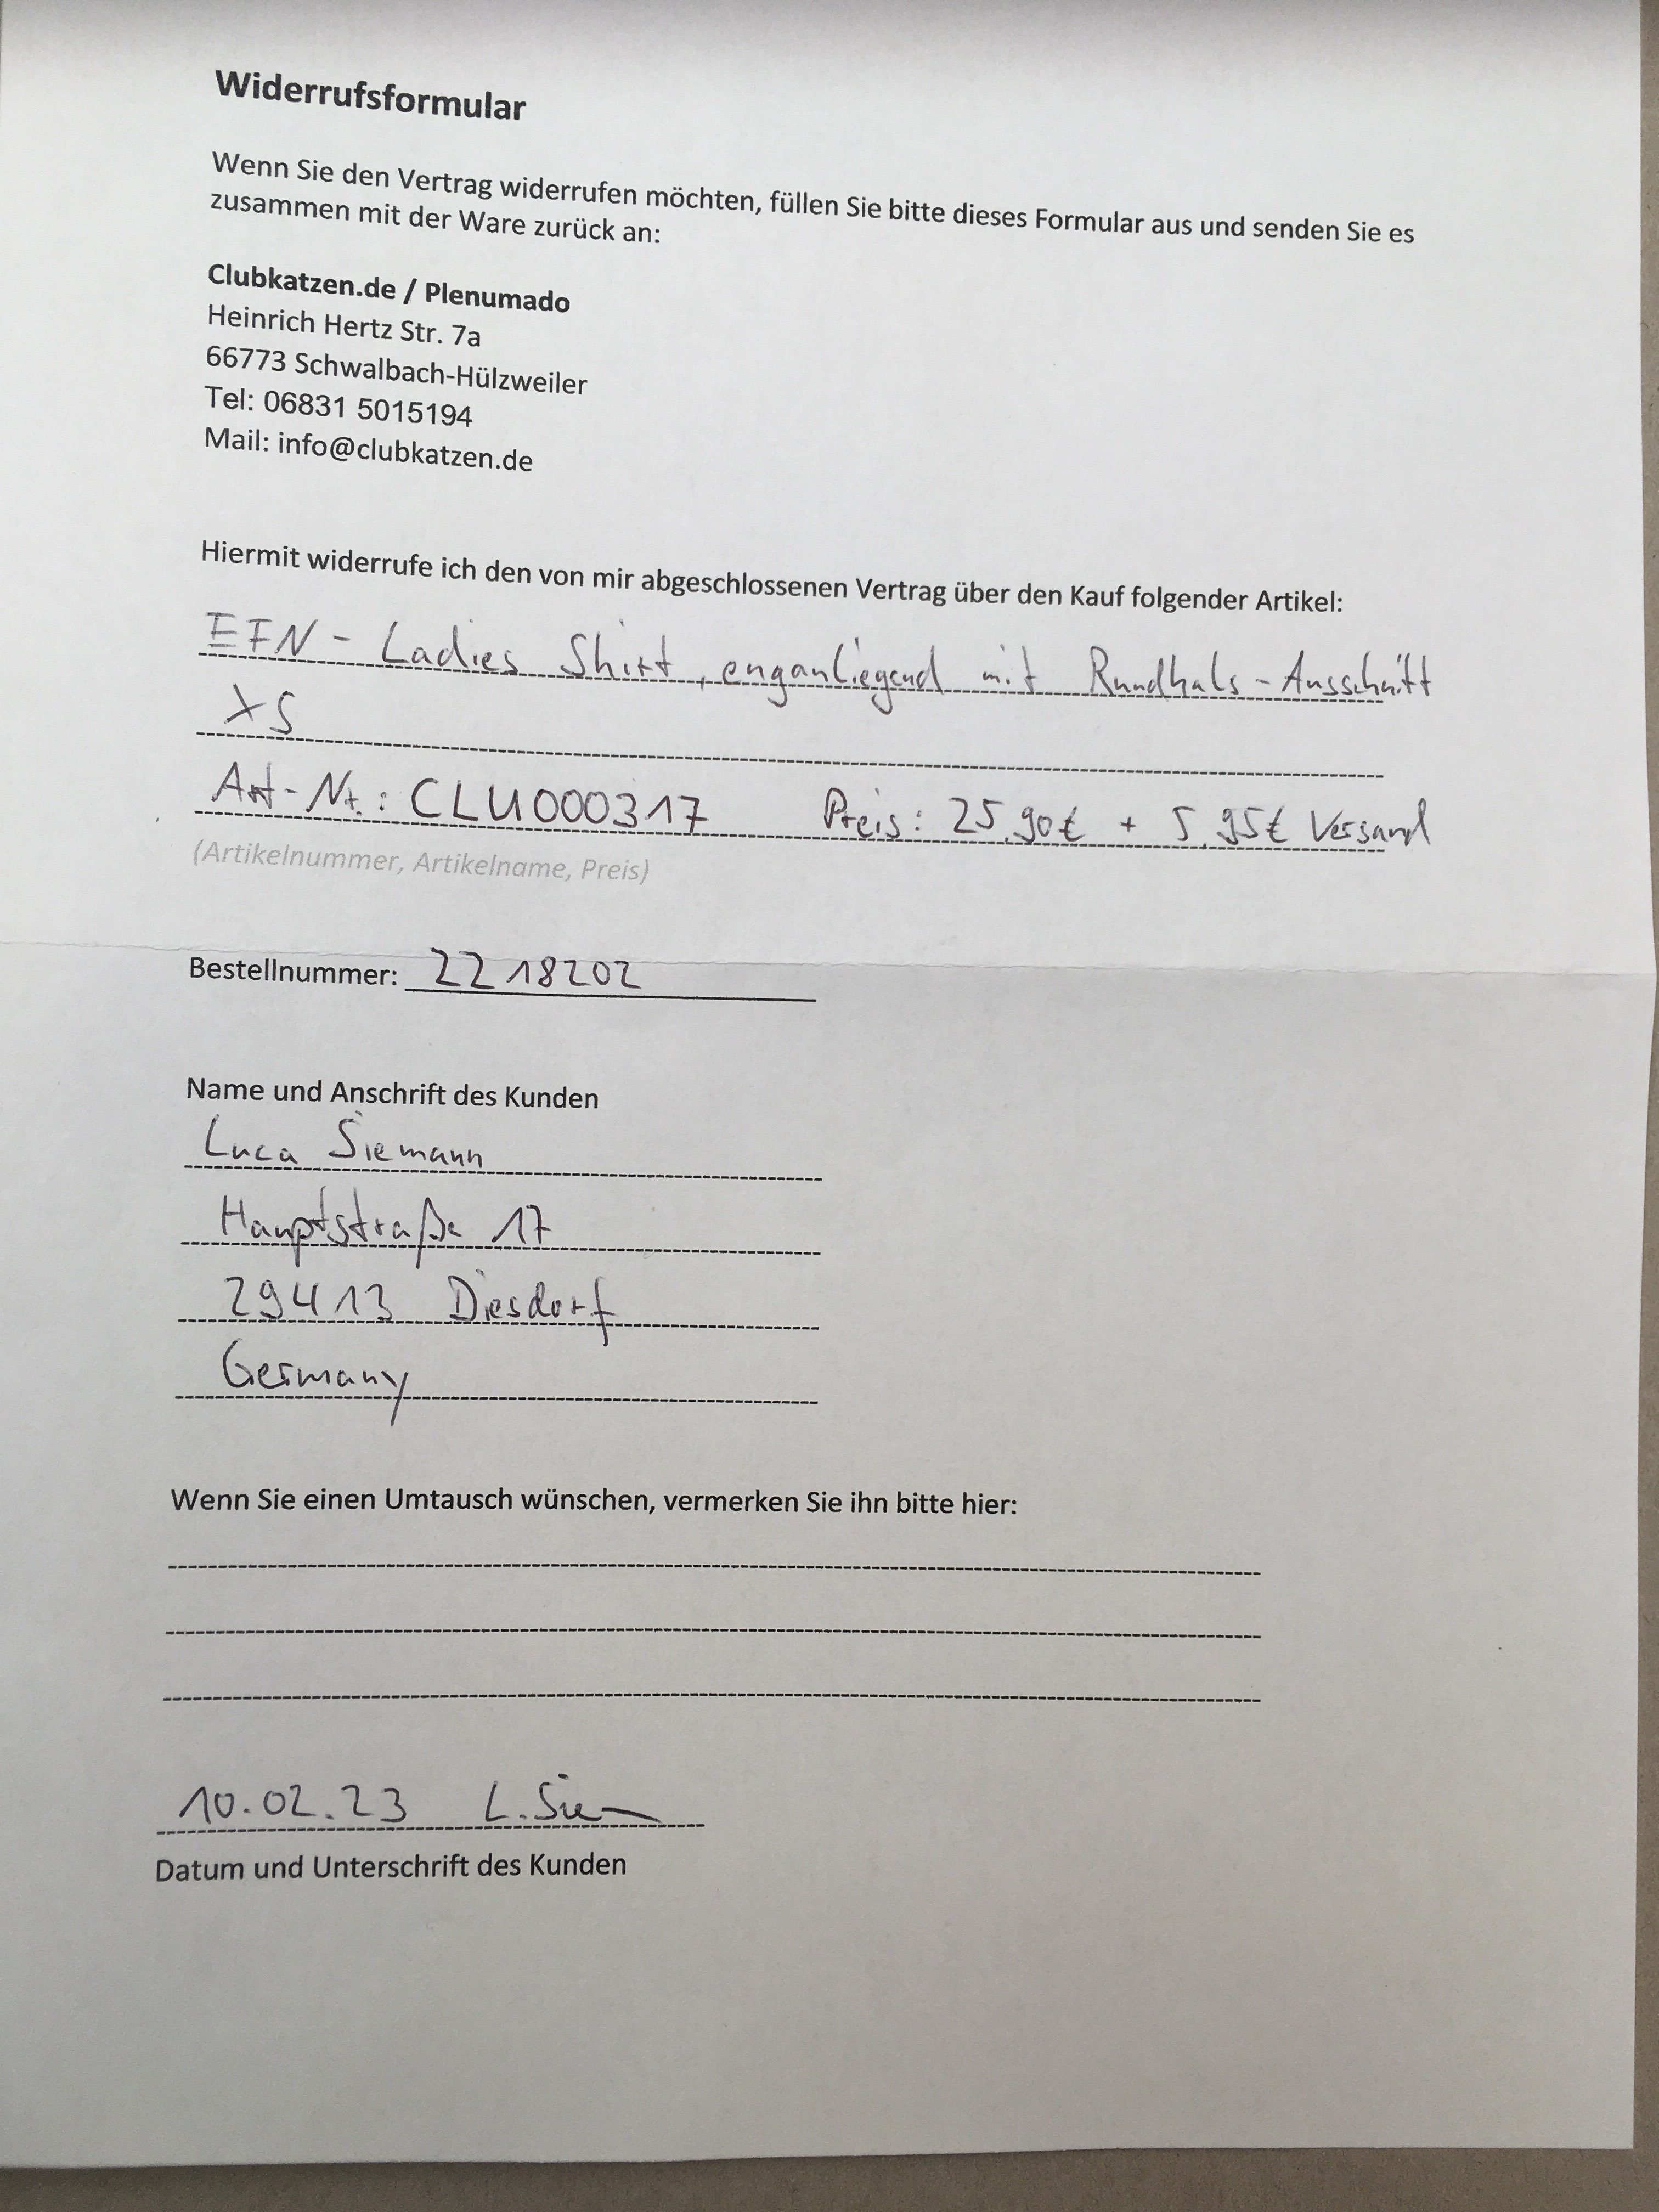 Widerrufsformular
Wenn Sie den Vertrag widerrufen möchten, füllen Sie bitte dieses Formular aus und senden Sie es
zusammen mit der Ware zurück an:
Clubkatzen.de / Plenumado
Heinrich Hertz Str. 7a
66773 Schwalbach-Hülzweiler
Tel: 06831 5015194
Mail: info@clubkatzen.de
Hiermit widerrufe ich den von mir abgeschlossenen Vertrag über den Kauf folgender Artikel:
EFN - Ladies Shirt, enganliegend mit Rundhals-Ausschnitt
XS
Art-Nr.: CLU000317 Preis: 25,90€ + 5,95€ Versand
(Artikelnummer, Artikelname, Preis)
Bestellnummer: 2218202
Name und Anschrift des Kunden
Luca Siemann
Hauptstraße 17
29413 Diesdorf
Germany
Wenn Sie einen Umtausch wünschen, vermerken Sie ihn bitte hier:
10.02.23 L. Siem
Datum und Unterschrift des Kunden